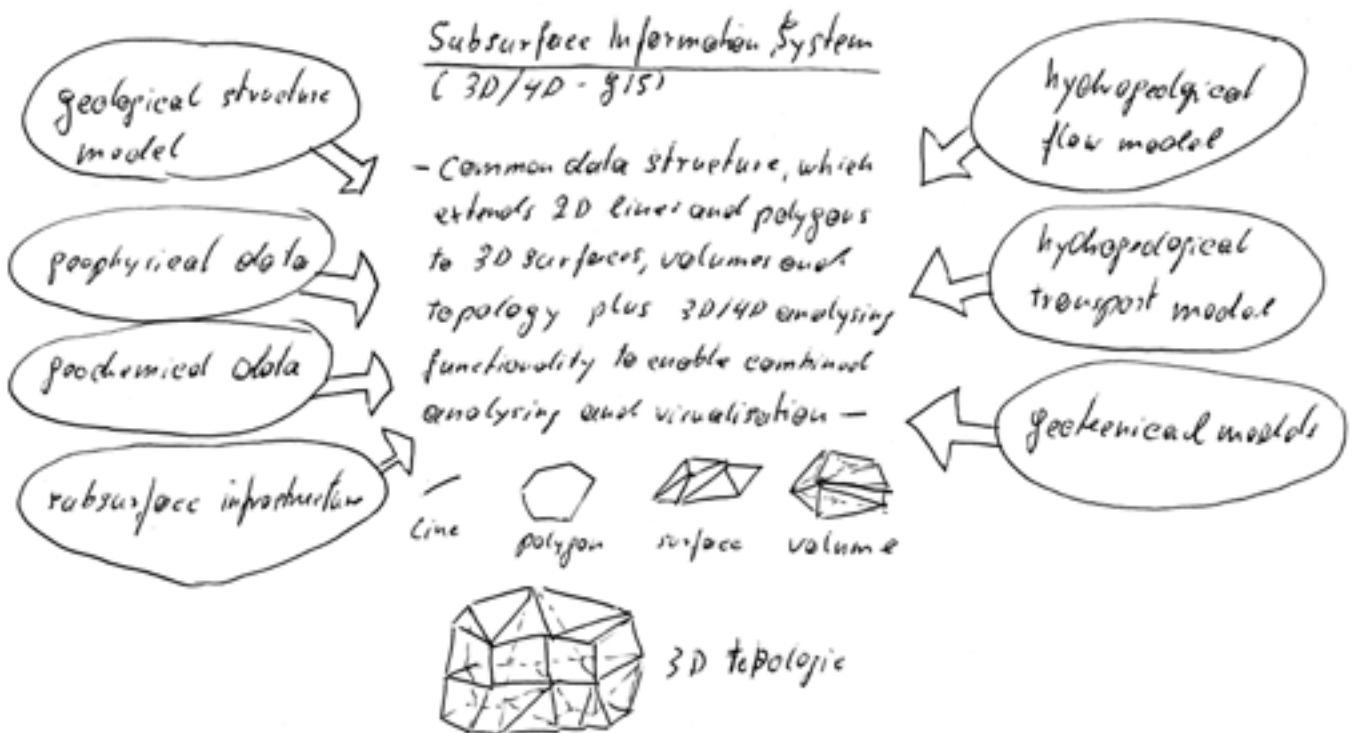 Subsurface Information System
(3D/4D-gis)
geological structure
model
geophysical data
geochemical data
subsurface infrastructure
- Common data structure, which
extends 2D lines and polygons
to 3D surfaces, volumes and
topology plus 3D/4D analysing
functionality to enable combined
analysing and visualisation -
hydrogeological
flow model
hydrogeological
transport model
models
line
polygon
surface
volume
3D topologie